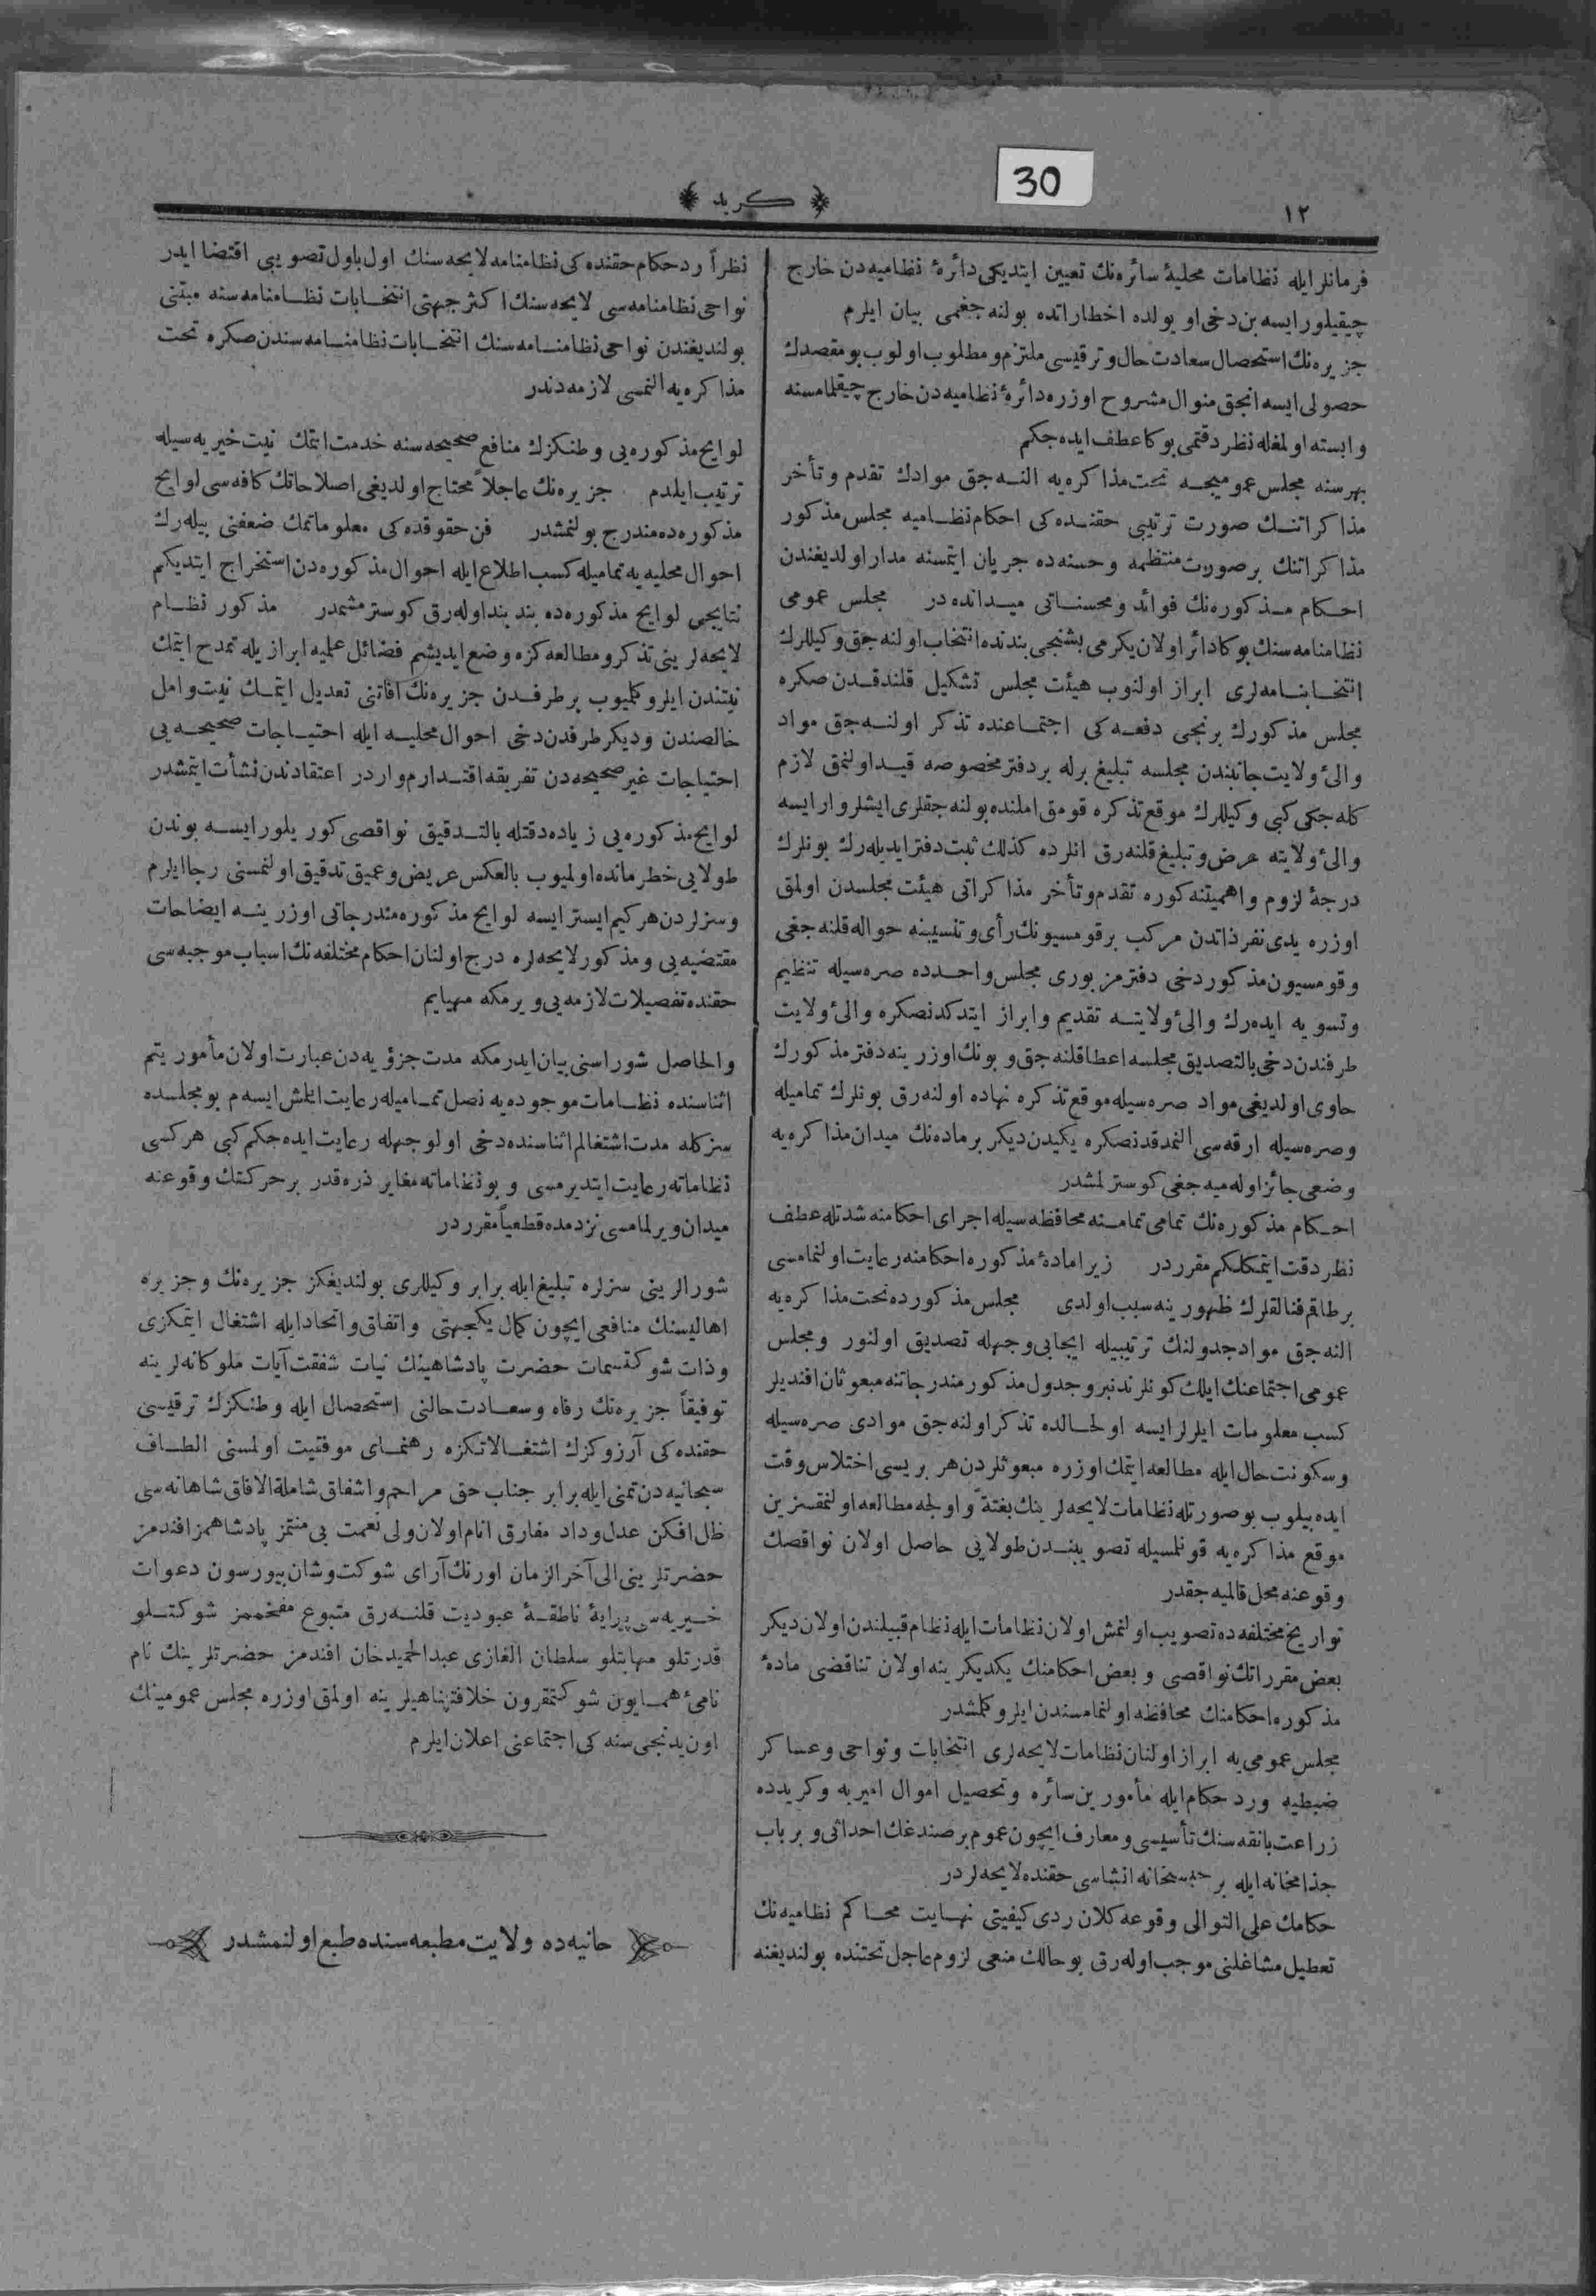 30
١٢
كريد
فرمانلر ايله نظامات محليهٔ سائره‌نك تعيين ايتديكى دائرهٔ نظاميه‌دن خارج
چيقيلور ايسه بن دخى او يولده اخطاراتده بولنه‌جغمى بيان ايلرم
جزيره‌نك استحصال سعادت حال و ترقيسى ملتزم و مطلوب اولوب بو مقصدك
حصولى ايسه انجق منوال مشروح اوزره دائرهٔ نظاميه‌دن خارج چيقلمامسنه
وابسته اولمغله نظر دقتمى بوكا عطف ايده‌جكم
بهر سنه مجلس عموميجه تحت مذاكره‌يه النه‌جق موادك تقدم و تأخر
مذاكراتنك صورت ترتيبى حقنده‌كى احكام نظاميه مجلس مذكور
مذاكراتنك بر صورت منتظمه و حسنه‌ده جريان ايتمسنه مدار اولديغندن
احكام مذكوره‌نك فوائد و محسناتى ميدانده‌در مجلس عمومى
نظامنامه‌سنك بوكا دائر اولان يكرمى بشنجى بندنده انتخاب اولنه‌جق وكيللرك
انتخابنامه‌لرى ابراز اولنوب هيئت مجلس تشكيل قلندقدن صكره
مجلس مذكورك برنجى دفعه‌كى اجتماعنده تذكر اولنه‌جق مواد
والئ ولايت جانبندن مجلسه تبليغ برله بر دفتر مخصوصه قيد اولنمق لازم
كله‌جكى كبى وكيللرك موقع تذكره قومق املنده بولنه‌جقلرى ايشلر وار ايسه
والئ ولايته عرض و تبليغ قلنه‌رق انلرده كذلك ثبت دفتر ايديله‌رك بونلرك
درجهٔ لزوم و اهميتنه كوره تقدم و تأخر مذاكراتى هيئت مجلسدن اولمق
اوزره يدى نفر ذاتدن مركب بر قومسيونك رأى و تنسيبنه حواله قلنه‌جغى
و قومسيون مذكور دخى دفتر مزبورى مجلس واحدده صره‌سيله تنظيم
و تسويه ايده‌رك والئ ولايته تقديم و ابراز ايتدكدنصكره والئ ولايت
طرفندن دخى بالتصديق مجلسه اعطا قلنه‌جق و بونك اوزرينه دفتر مذكورك
حاوى اولديغى مواد صره‌سيله موقع تذكره نهاده اولنه‌رق بونلرك تماميله
و صره‌سيله ارقه‌سى النمدقدنصكره يكيدن ديكر بر ماده‌نك ميدان مذاكره‌يه
وضعى جائز اوله‌ميه‌جغى كوسترلمشدر
احكام مذكوره‌نك تمامى تمامنه محافظه‌سيله اجراى احكامنه شدتله عطف
نظر دقت ايتمكلكم مقرردر زيرا مادهٔ مذكوره احكامنه رعايت اولنمامسى
بر طاقم فنالقلرك ظهورينه سبب اولدى مجلس مذكورده تحت مذاكره‌يه
النه‌جق مواد جدولنك ترتيبيله ايجابى وجهله تصديق اولنور و مجلس
عمومى اجتماعنك ايلك كونلرندنبرو جدول مذكور مندرجاتنه مبعوثان افنديلر
كسب معلومات ايلرلر ايسه اولحالده تذكر اولنه‌جق موادى صره‌سيله
و سكونت حال ايله مطالعه ايتمك اوزره مبعوثلردن هر بريسى اختلاس وقت
ايده بيلوب بو صورتله نظامات لايحه‌لرينك بغتةً و اولجه مطالعه اولنمقسزين
موقع مذاكره‌يه قونلمسيله تصويبندن طولايى حاصل اولان نواقصك
وقوعنه محل قالميه‌جقدر
تواريخ مختلفه‌ده تصويب اولنمش اولان نظامات ايله نظام قبيلندن اولان ديكر
بعض مقرراتك نواقصى و بعض احكامنك يكديكرينه اولان تناقضى مادهٔ
مذكوره احكامنك محافظه اولنمامسندن ايلرو كلمشدر
مجلس عمومى‌يه ابراز اولنان نظامات لايحه‌لرى انتخابات و نواحى و عساكر
ضبطيه و رد حكام ايله مأمورين سائره و تحصيل اموال اميريه و كريدده
زراعت بانقه‌سنك تأسيسى و معارف ايچون عموم بر صندغك احداثى و بر باب
جذامخانه ايله بر حبسخانه انشاسى حقنده لايحه‌لردر
حكامك على التوالى وقوعه كلان ردى كيفيتى نهايت محاكم نظاميه‌نك
تعطيل مشاغلنى موجب اوله‌رق بو حالك منعى لزوم عاجل تحتنده بولنديغنه
نظراً رد حكام حقنده‌كى نظامنامه لايحه‌سنك اول باول تصويبى اقتضا ايدر
نواحى نظامنامه‌سى لايحه‌سنك اكثر جهتى انتخابات نظامنامه‌سنه مبتنى
بولنديغندن نواحى نظامنامه‌سنك انتخابات نظامنامه‌سندن صكره تحت
مذاكره‌يه النمسى لازمه‌دندر
لوايح مذكوره‌يى وطنكزك منافع صحيحه‌سنه خدمت ايتمك نيت خيريه‌سيله
ترتيب ايلدم جزيره‌نك عاجلاً محتاج اولديغى اصلاحاتك كافه‌سى لوايح
مذكوره‌ده مندرج بولنمشدر فن حقوقده‌كى معلوماتمك ضعفنى بيله‌رك
احوال محليه‌يه تماميله كسب اطلاع ايله احوال مذكوره‌دن استخراج ايتديكم
نتايجى لوايح مذكوره‌ده بند بند اوله‌رق كوسترمشمدر مذكور نظام
لايحه‌لرينى تذكر و مطالعه‌كزه وضع ايديشم فضائل علميه ابرازيله تمدح ايتمك
نيتندن ايلرو كلميوب بر طرفدن جزيره‌نك آفاتنى تعديل ايتمك نيت و امل
خالصندن و ديكر طرفدن دخى احوال محليه ايله احتياجات صحيحه‌يى
احتياجات غير صحيحه‌دن تفريقه اقتدارم واردر اعتقادندن نشأت ايتمشدر
لوايح مذكوره‌يى زياده دقتله بالتدقيق نواقصى كوريلور ايسه بوندن
طولايى خطرمانده اولميوب بالعكس عريض و عميق تدقيق اولنمسنى رجا ايلرم
و سزلردن هر كيم ايستر ايسه لوايح مذكوره مندرجاتى اوزرينه ايضاحات
مقتضيه‌يى و مذكور لايحه‌لره درج اولنان احكام مختلفه‌نك اسباب موجبه‌سى
حقنده تفصيلات لازمه‌يى ويرمكه مهيايم
والحاصل شوراسنى بيان ايدرمكه مدت جزؤيه‌دن عبارت اولان مأموريتم
اثناسنده نظامات موجوده‌يه نصل تماميله رعايت ايلمش ايسه‌م بو مجلسده
سزكله مدت اشتغالم اثناسنده دخى اولوجهله رعايت ايده‌جكم كبى هركسى
نظاماته رعايت ايتديرمسى و بو نظاماته مغاير ذره قدر بر حركتك وقوعنه
ميدان ويرلمامسى نزدمده قطعياً مقرردر
شورالرينى سزلره تبليغ ايله برابر وكيللرى بولنديغكز جزيره‌نك و جزيره
اهاليسنك منافعى ايچون كمال يكجهتى و اتفاق و اتحاد ايله اشتغال ايتمكزى
و ذات شوكتسمات حضرت پادشاهينك نيات شفقت آيات ملوكانه‌لرينه
توفيقاً جزيره‌نك رفاه و سعادت حالنى استحصال ايله وطنكزك ترقيسى
حقنده‌كى آرزوكزك اشتغالاتكزه رهنماى موفقيت اولمسنى الطاف
سبحانيه‌دن تمنى ايله برابر جناب حق مراحم و اشفاق شاملة الافاق شاهانه‌سى
ظل افكن عدل و داد مفارق انام اولان ولى نعمت بى منتمز پادشاهمز افندمز
حضرتلرينى الى آخر الزمان اورنك آراى شوكت و شان بيورسون دعوات
خيريه‌سى پيرايهٔ ناطقهٔ عبوديت قلنه‌رق متبوع مفخممز شوكتلو
قدرتلو مهابتلو سلطان الغازى عبدالحميد خان افندمز حضرتلرينك نام
نامئ همايون شوكتمقرون خلافتپناهيلرينه اولمق اوزره مجلس عمومينك
اون يدنجى سنه‌كى اجتماعنى اعلان ايلرم
حانيه‌ده ولايت مطبعه‌سنده طبع اولنمشدر